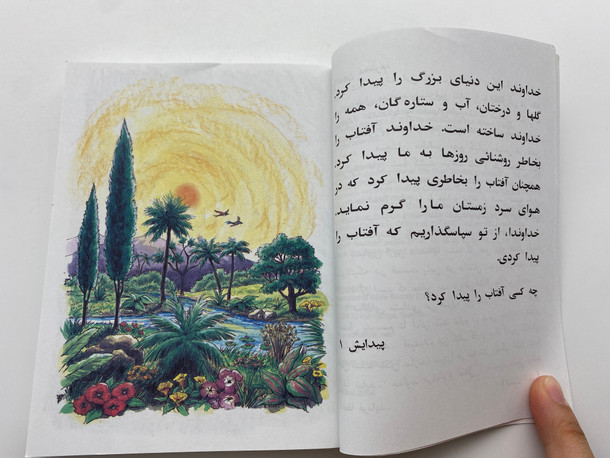 خداوند این دنیای بزرگ را پیدا کرد.
گلها و درختان، آب و ستاره گان، همه را
خداوند ساخته است. خداوند آفتاب را
بخاطر روشنائی روزها به ما پیدا کرد.
همچنان آفتاب را بخاطری پیدا کرد که در
هوای سرد زمستان مارا گرم نماید.
خداوندا، از تو سپاسگذاریم که آفتاب را
پیدا کردی.
چه کسی آفتاب را پیدا کرد؟
پیدایش ۱